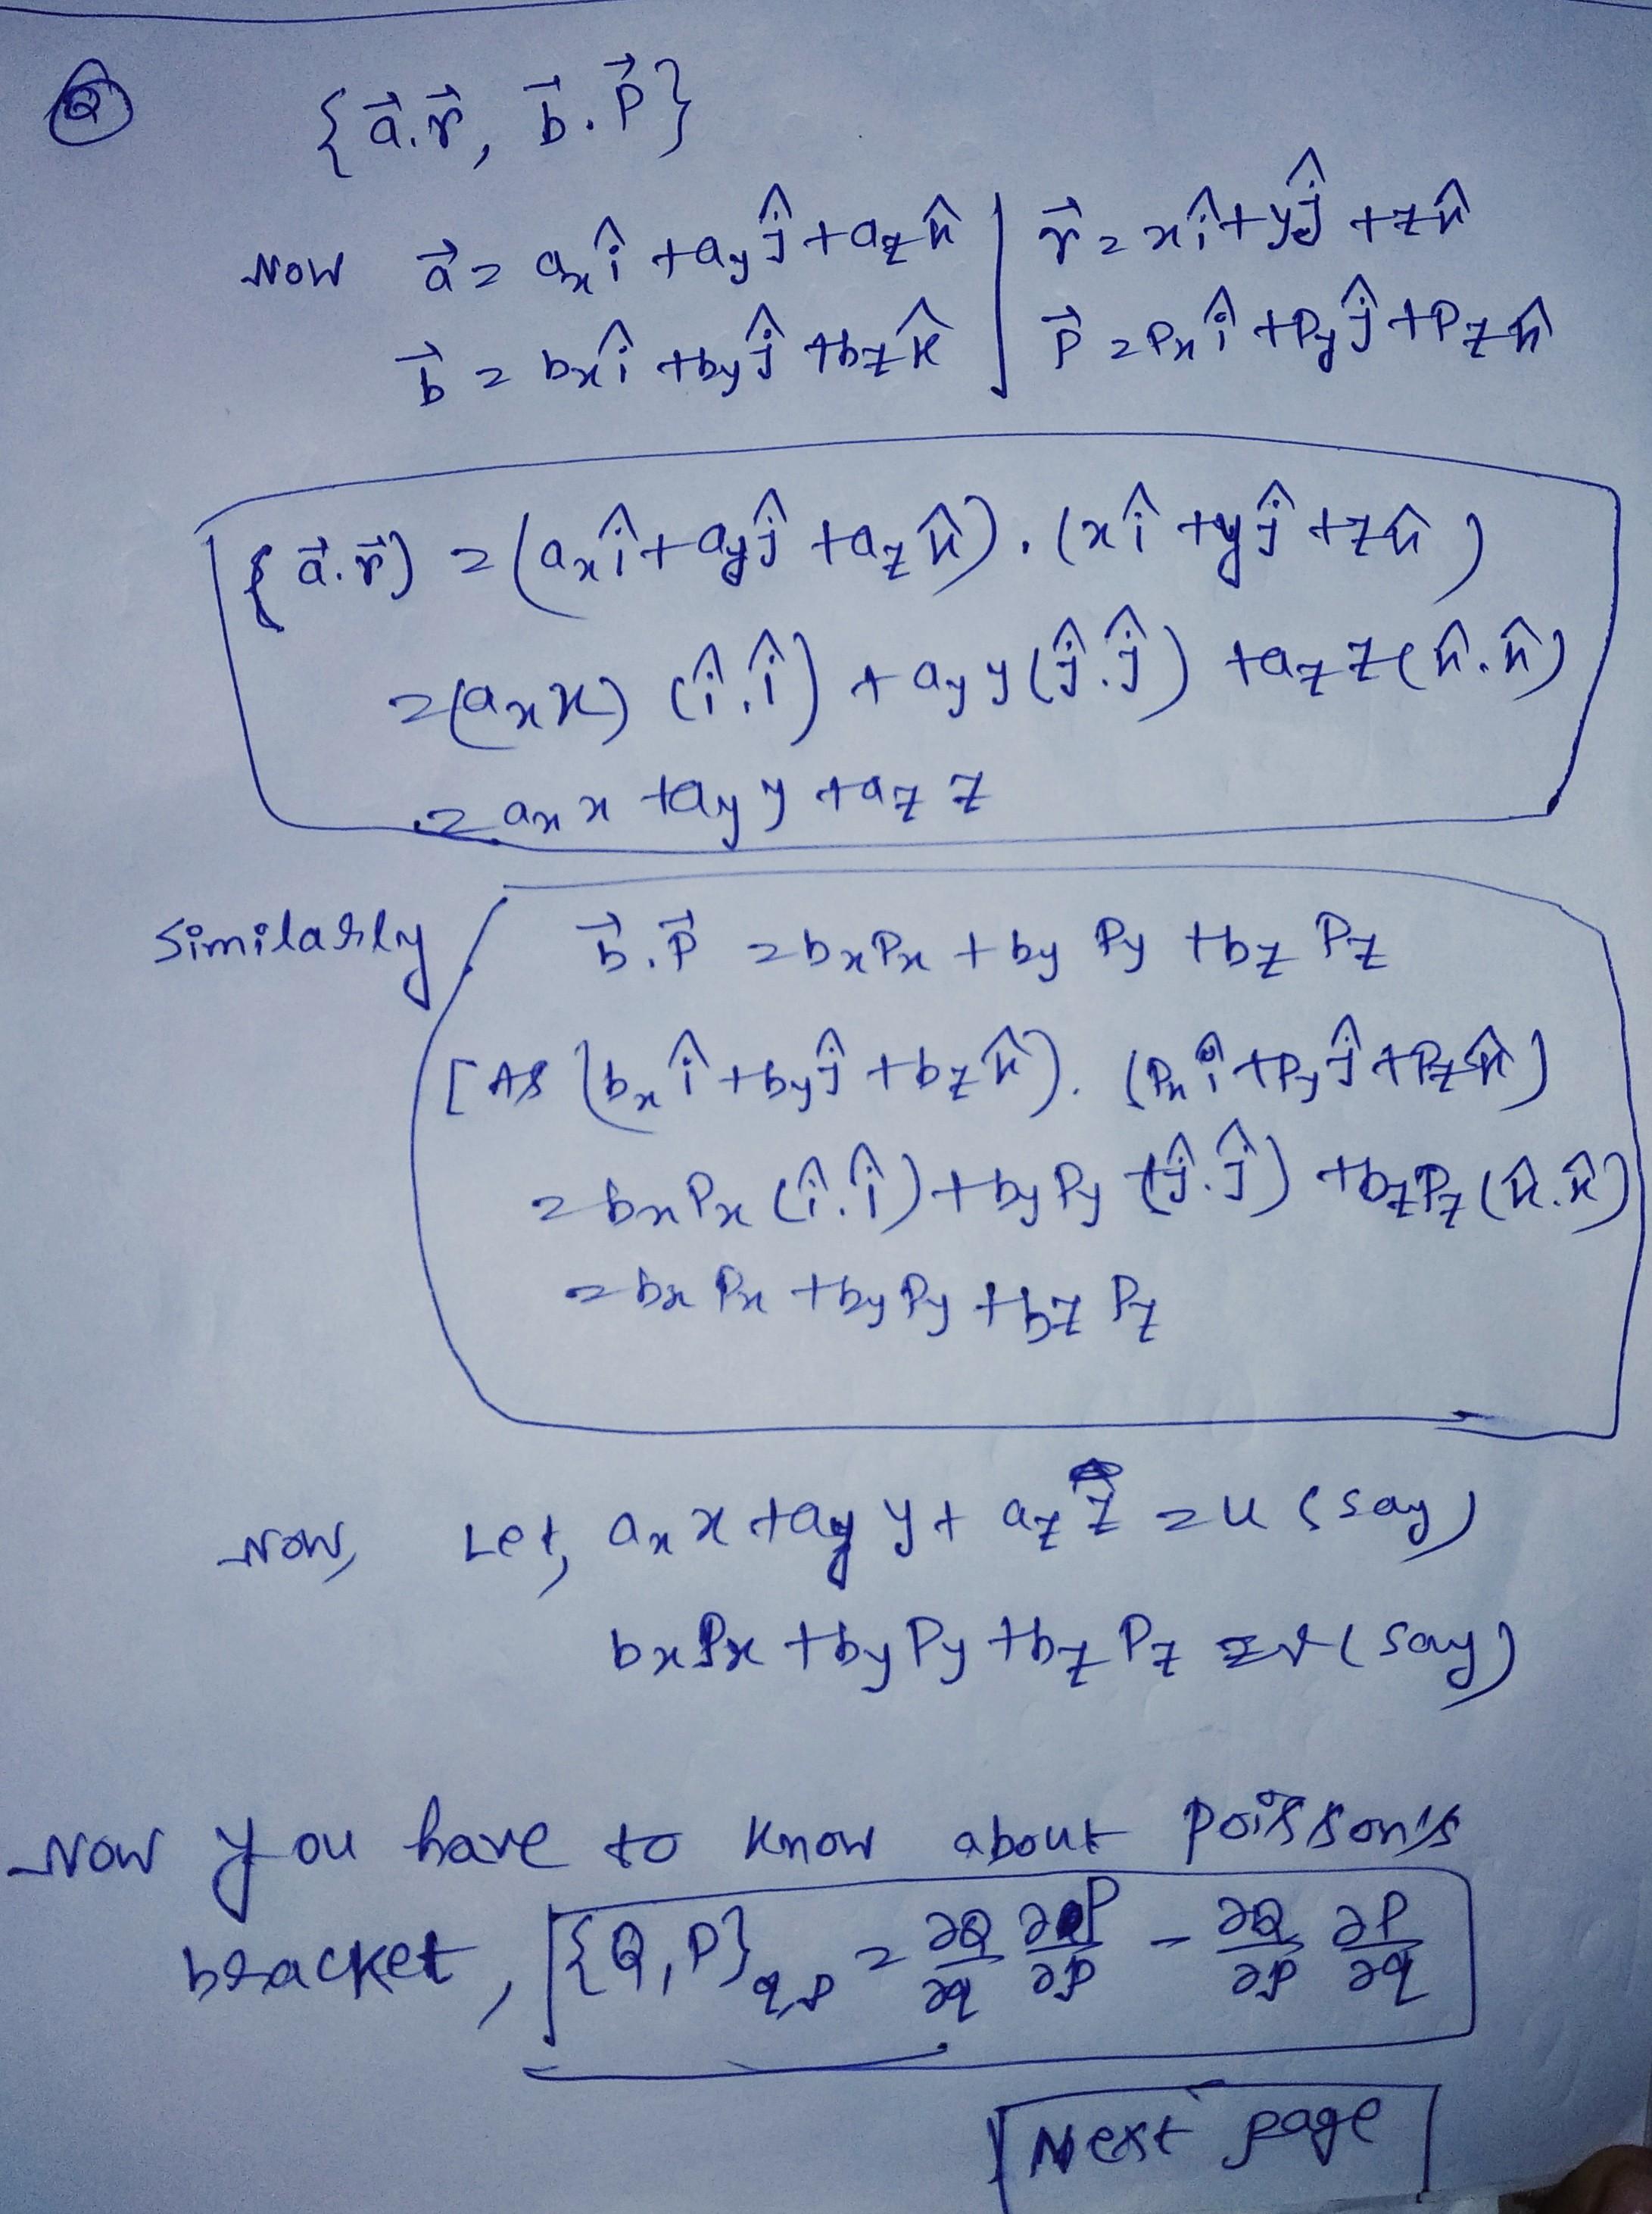 Q {a⃗.r⃗, b⃗.p⃗}
Now a⃗ = aₓî + a_yĵ + a_zk̂ | r⃗ = xî + yĵ + zk̂
b⃗ = bₓî + b_yĵ + b_zk̂ | p⃗ = pₓî + p_yĵ + p_zk̂
(a⃗.r⃗) = (aₓî + a_yĵ + a_zk̂).(xî + yĵ + zk̂)
= (aₓx) (î.î) + a_y y(ĵ.ĵ) + a_z z(k̂.k̂)
= aₓx + a_y y + a_z z
Similarly b⃗.p⃗ = bₓpₓ + b_y p_y + b_z p_z
[As (bₓî + b_yĵ + b_zk̂).(pₓî + p_yĵ + p_zk̂)
= bₓpₓ(î.î) + b_y p_y (ĵ.ĵ) + b_z p_z(k̂.k̂)
= bₓpₓ + b_y p_y + b_z p_z
Now, Let, aₓx + a_y y + a_z z = u (say)
bₓpₓ + b_y p_y + b_z p_z = v (say)
Now you have to know about poisson's
bracket, {Q,P}q,p = ∂Q/∂q ∂P/∂p - ∂Q/∂p ∂P/∂q
Next page